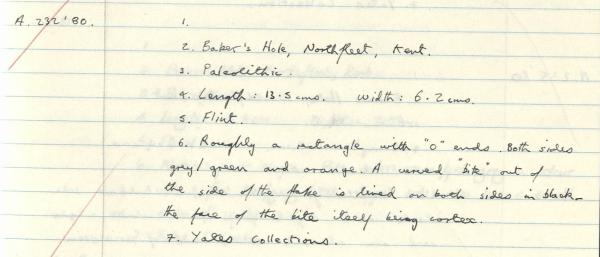 A. 232'80. 1.
2. Baker's Hole, Northfleet, Kent.
3. Paleolithic.
4. Length: 13.5 cms. Width: 6.2 cms.
5. Flint.
6. Roughly a rectangle with "o" ends. Both sides
grey/green and orange. A curved "bite" out of
the side of the flake is lined on both sides in black -
the face of the bite itself being cortex.
7. Yates Collections.